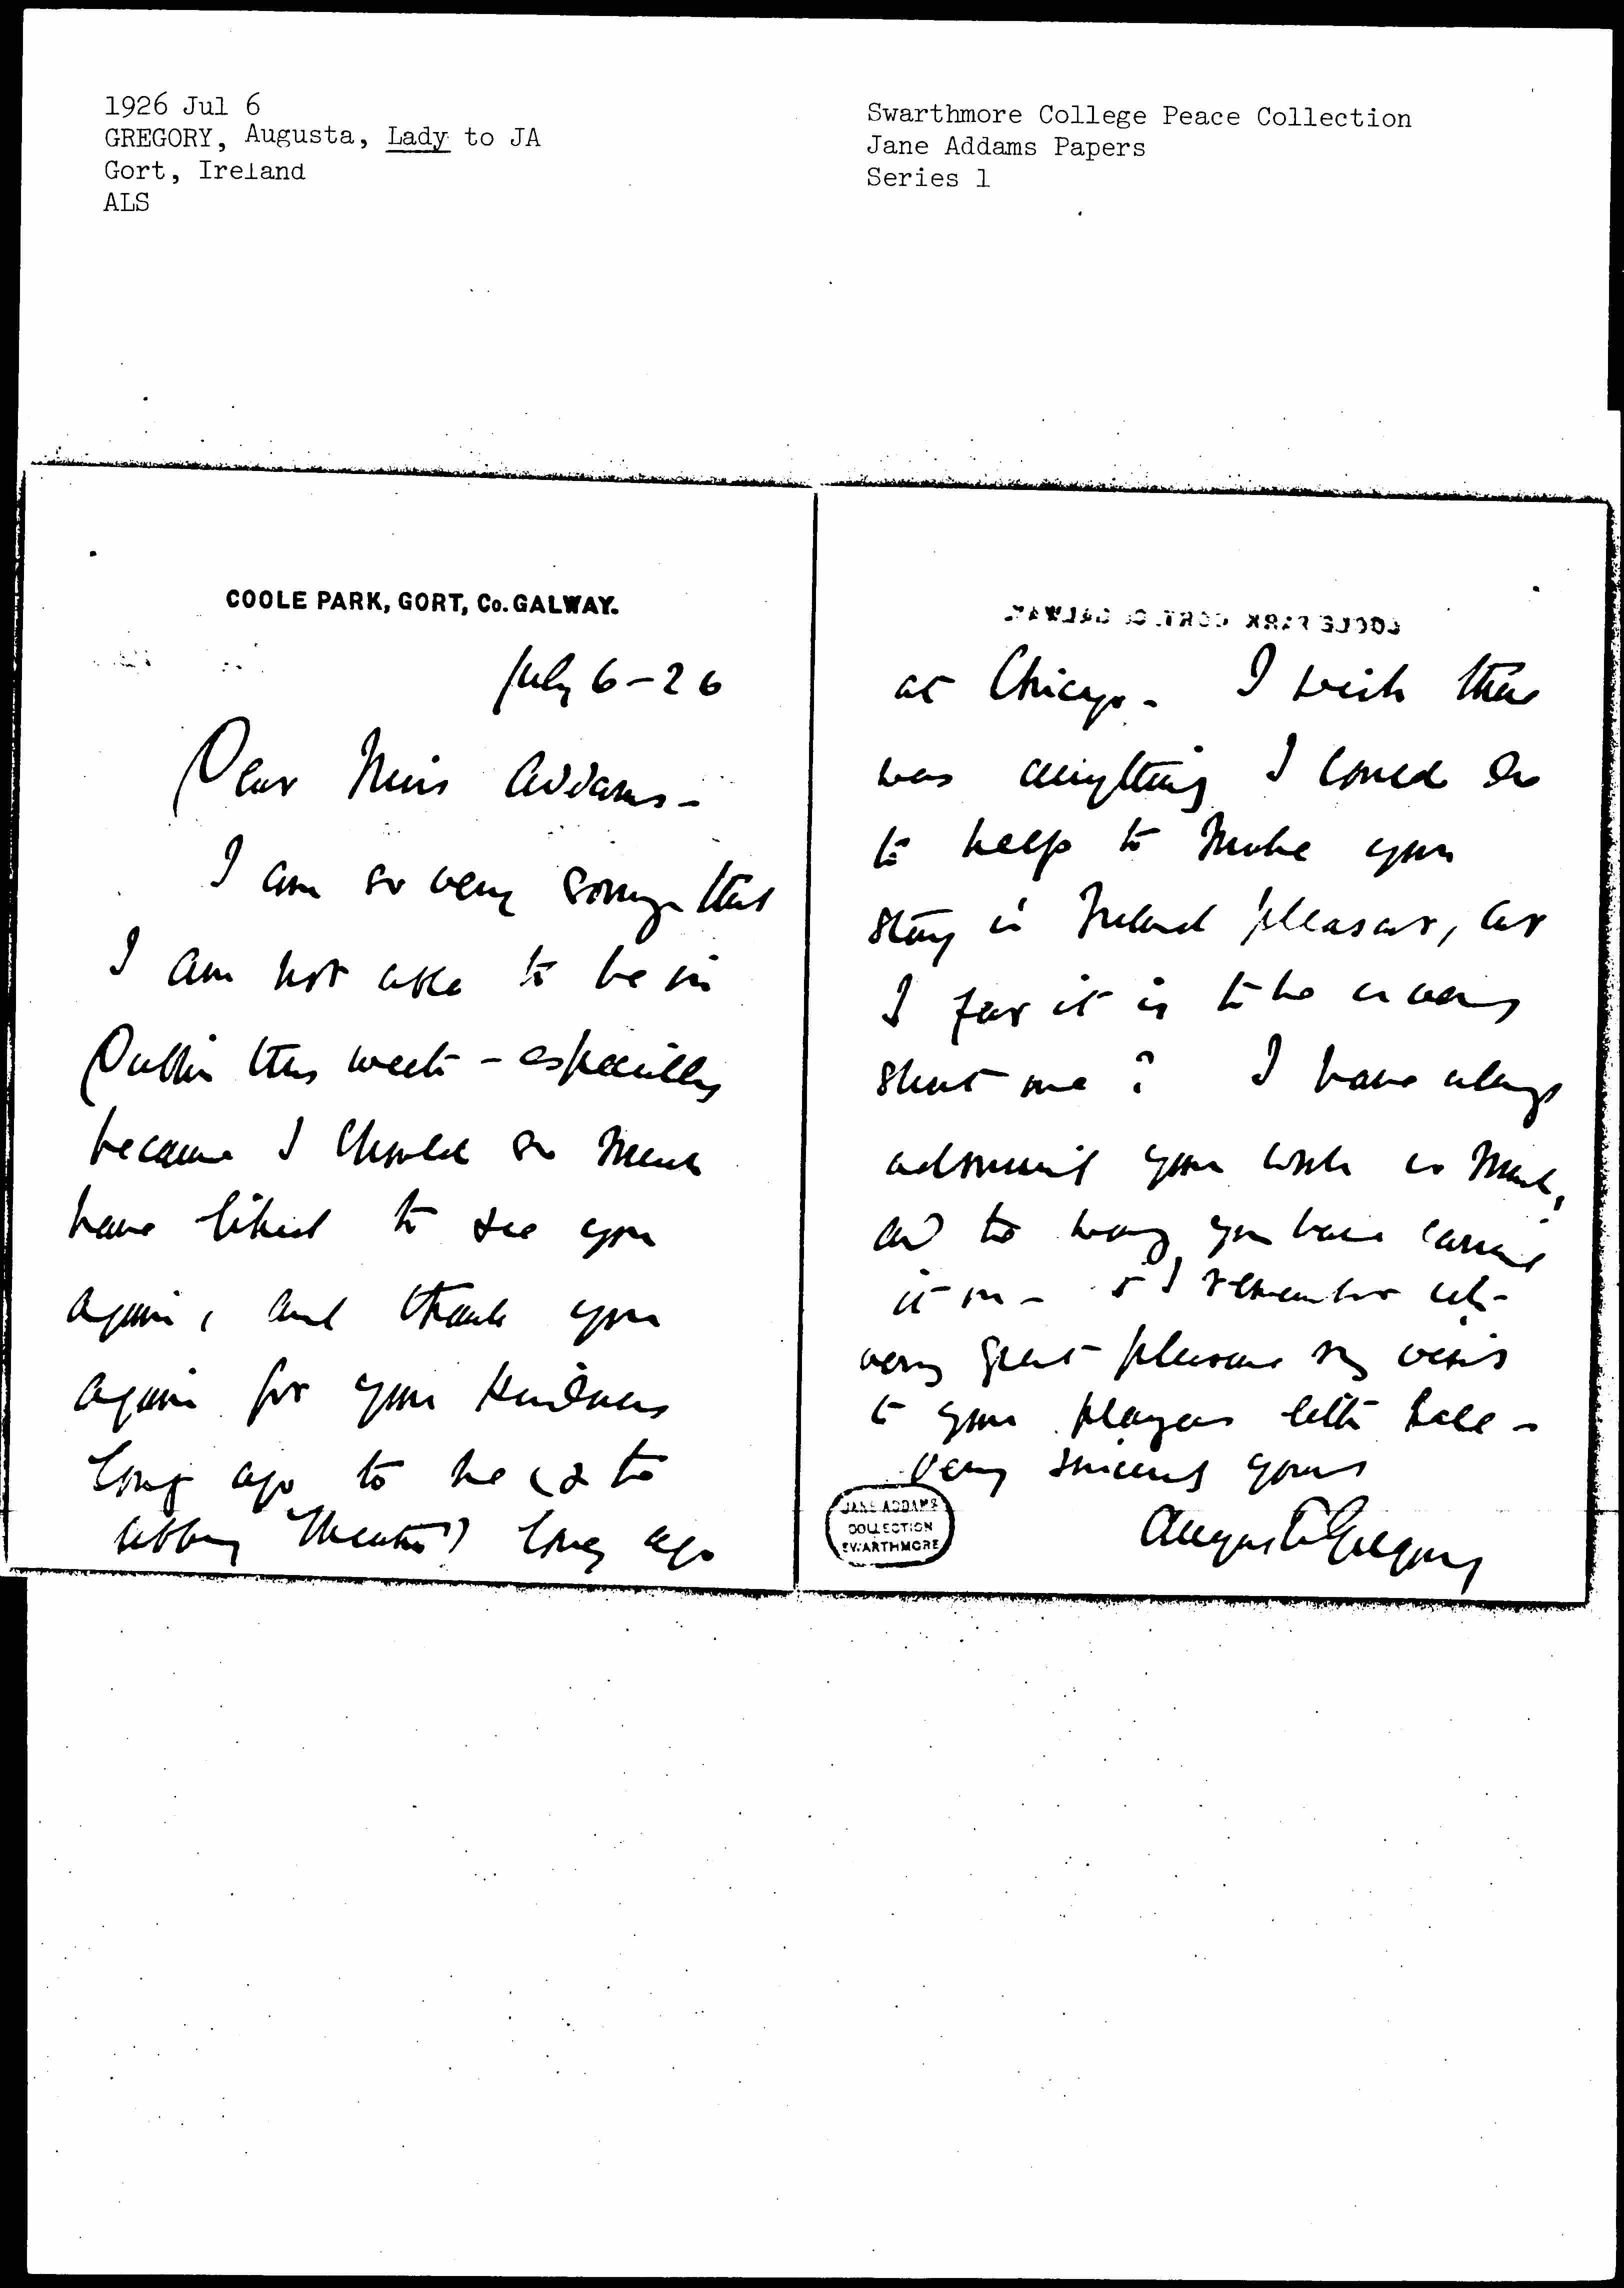 1926 Jul 6
GREGORY, Augusta, Lady to JA
Gort, Ireland
ALS
Swarthmore College Peace Collection
Jane Addams Papers
Series 1
COOLE PARK, GORT, Co. GALWAY.
July 6-26
Dear Miss Addams -
I am so very sorry that
I am not able to be in
Dublin this week - especially
because I should so much
have liked to see you
again, and thank you
again for your kindness
long ago to me (& to
Abbey Theatre) long ago
at Chicago - I wish there
was anything I could do
to help to make your
stay in Ireland pleasant, but
I fear it is to be a very
short one? I have always
admired your work so much,
and the way you have carried
it on - & I remember with
very great pleasure my visit
to your players little hall -
Very sincerely yours
Augusta Gregory
JANE ADDAMS
COLLECTION
SWARTHMORE